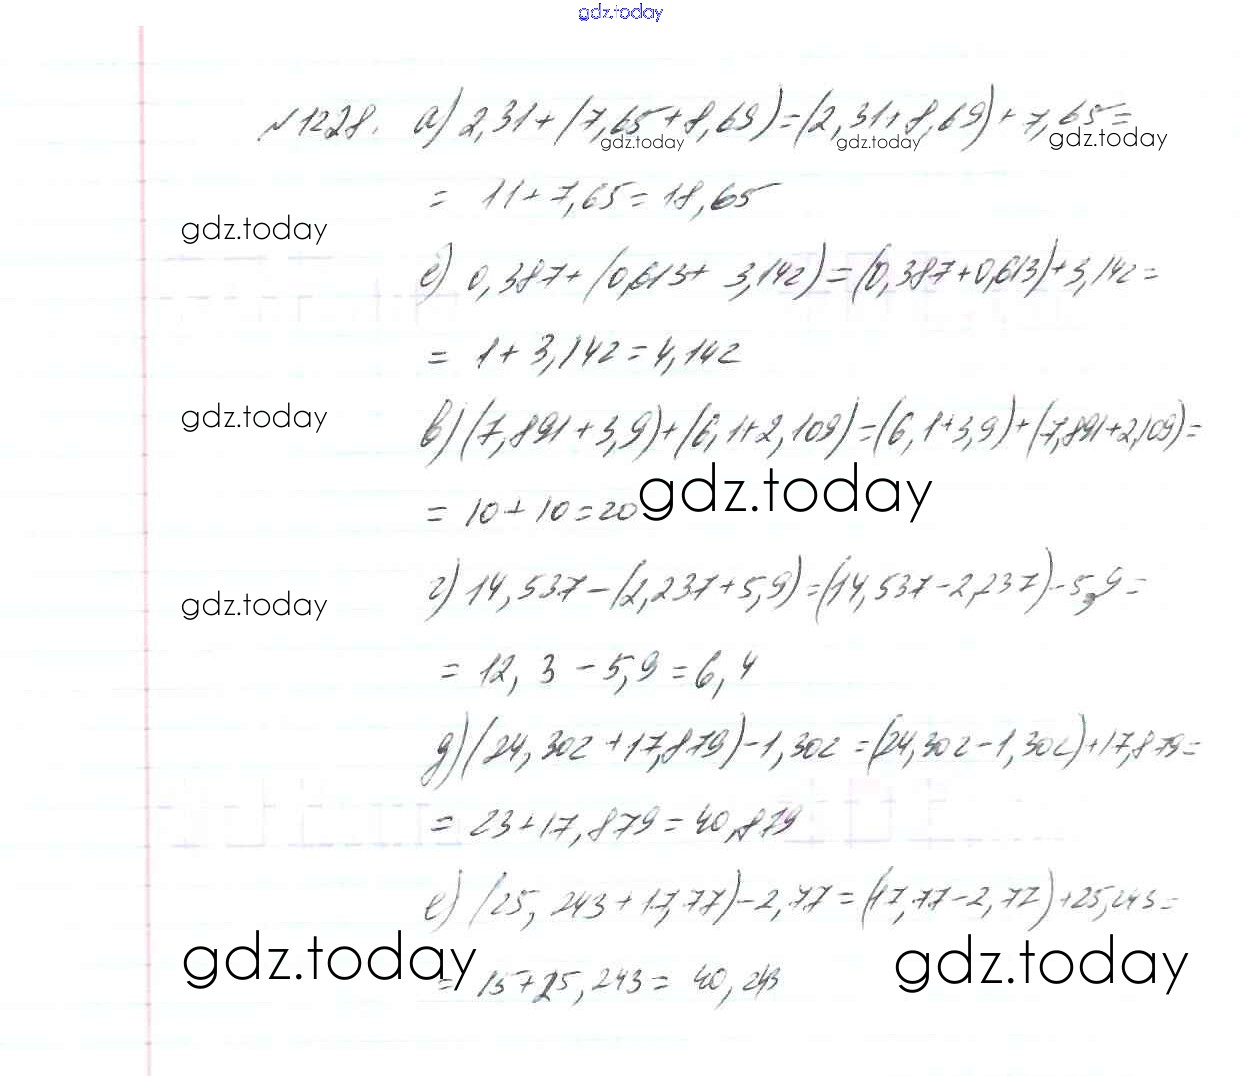 gdz.today
№1228. а) 2,31+(7,65+8,69)=(2,31+8,69)+7,65=
gdz.today gdz.today gdz.today
= 11+7,65=18,65
gdz.today
е) 0,387+(0,613+3,142)=(0,387+0,613)+3,142=
= 1+3,142=4,142
gdz.today
в) (7,891+3,9)+(6,1+2,109)=(6,1+3,9)+(7,891+2,109)=
= 10+10=20
gdz.today
г) 14,537-(2,237+5,9)=(14,537-2,237)-5,9=
gdz.today
= 12,3-5,9=6,4
д) (24,302+17,879)-1,302=(24,302-1,302)+17,879=
= 23+17,879=40,879
е) (25,243+17,77)-2,77=(17,77-2,77)+25,243=
gdz.today gdz.today
= 15+25,243=40,243